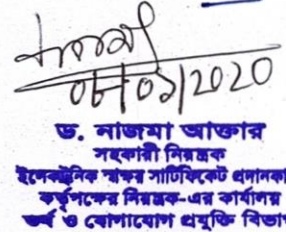 ০৮/০১/2020
ড. নাজমা আক্তার
সহকারী নিয়ন্ত্রক
ইলেকট্রনিক স্বাক্ষর সার্টিফিকেট প্রদানকা
কর্তৃপক্ষের নিয়ন্ত্রক-এর কার্যালয়
তথ্য ও যোগাযোগ প্রযুক্তি বিভা